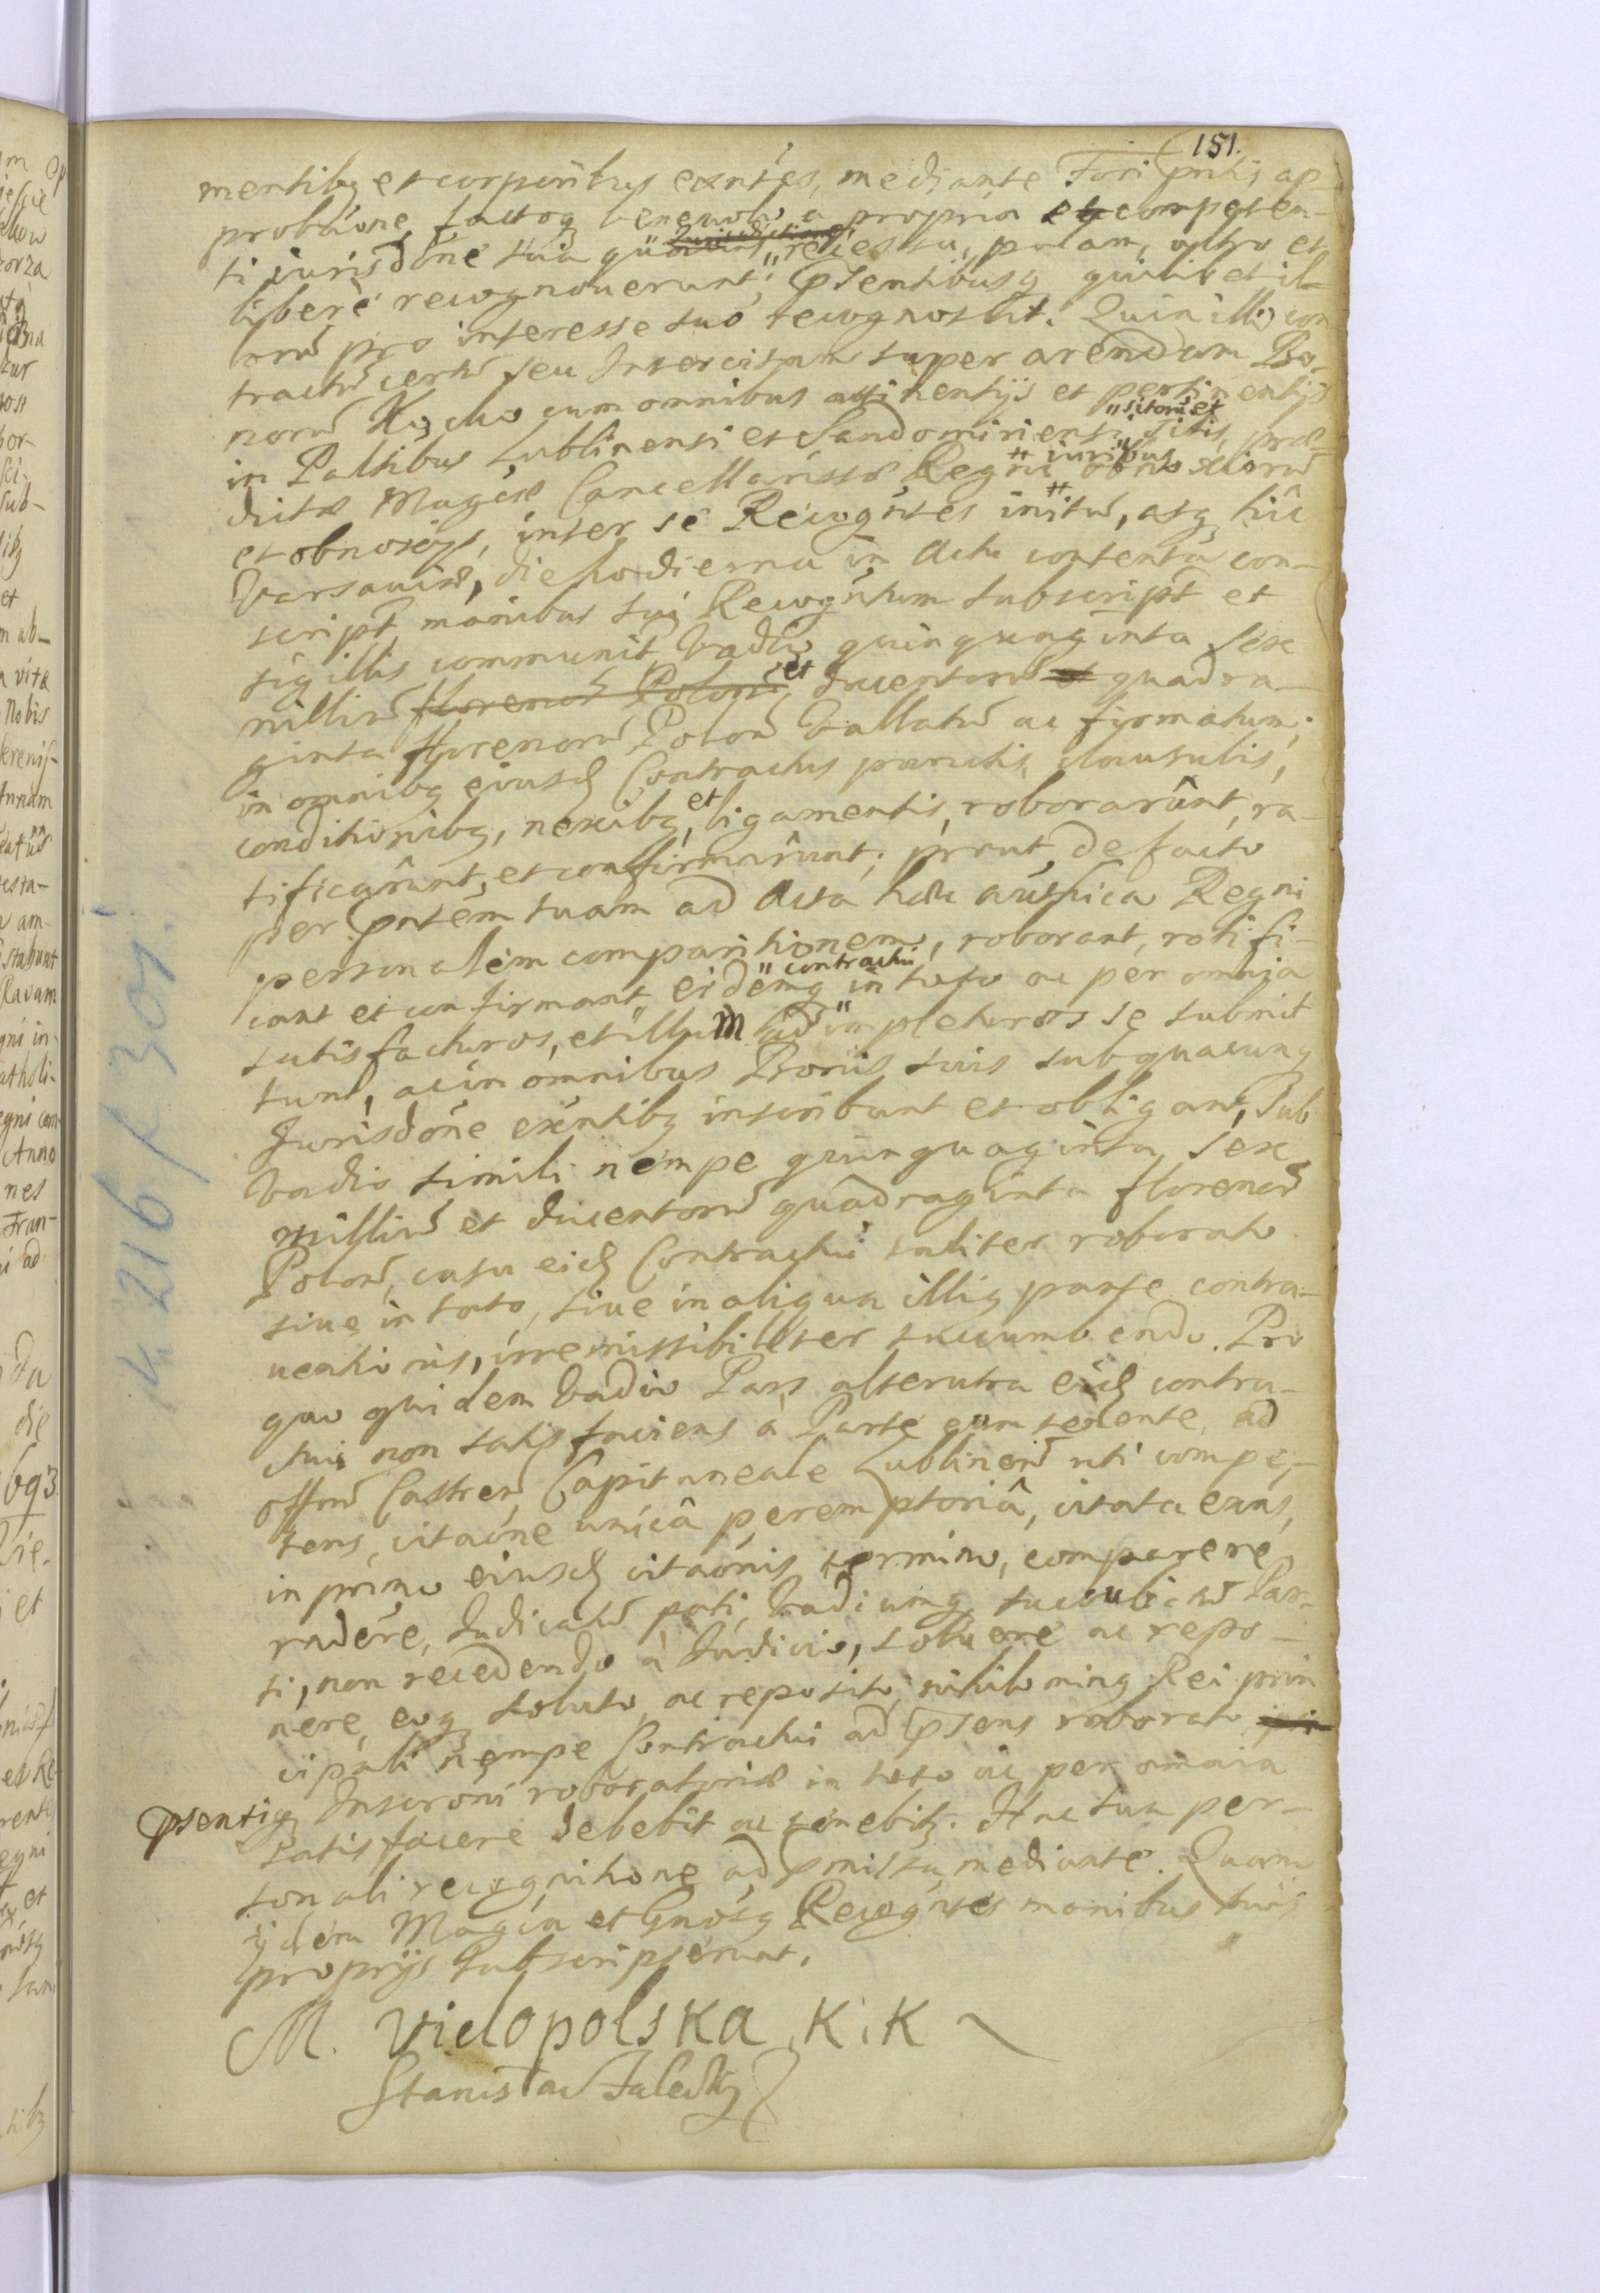 151.
mentibg et corporibus exntes, mediante Fori pntis ap-
probaone, factoq benevolo a propria et competen-
ti jurisdone sua recessu, palam, ultro et
liberè recognoverunt; Psentibusq quilibet il-
lorũ pro interesse suo recognoscit. Quia illi con-
tractũ certũ seu Intercisam super arendam Bo-
norũ cum omnibus attinentijs et pertinentijs
in Paltibus Lublinensi et Sandomiriensi "sitorũ et sitis, præ-
dictæ Magcæ Cancellarissæ Regni iuribus obnoxiorũ
et obnoxijs, inter se Recogntes initũ, atq hîc
Varsaviæ, die hodierna in Actu contenta con-
script, manibus sui Recogntium subscript et
sigillis communit, Vadio quinquaginta sex
milliũ florenorũ Polonũ et ducentorũ et quadra-
ginta florenorũ Polonũ Vallatũ ac firmatum;
in omnibg eiusd Contractus punctis, clausulis,
conditionibg, nexibg, et ligamentis, roborarûnt, ra-
tificarûnt, et confirmarûnt; prout de facto
per pntem suam ad Acta hæc authica Regni
personalem comparitionem, roborant, ratifi-
cant et confirmant, eidemq "contractui in toto ac per omnia
satisfacturos, et illum adimpleturos se submit-
tunt, ac in omnibus Bonis suis sub quacunq
Jurisdone exntibg inscribunt et obligant, Sub
Vadio simili nempe quinquaginta sex
milliũ et ducentorũ quadraginta florenorũ
Polonũ, casu eid Contractui taliter roborato
sive in toto, sive in aliqua illig parte contra-
ventionis, irremissibiliter succumbendo. Pro
quo quidem Vadio Pars alterutra eid contra-
ctui non satisfaciens à Parte eum tenente, ad
offm Castren Capitaneale Lublinen uti compe-
tens, citaone unicâ peremptoriâ, citata exns,
in primo eiusd citaonis termino, comparere,
rndere, Judicatũ pati, Vadiumq succubitũ Par-
ti, non recedendo à Judicio, solvere ac repo-
nere, eoq soluto ac reposito, nihilominq Rei prin-
cipali nempe Contractui ad psens roborato
psentiq Inscroni roboratoriæ in toto ac per omnia
satisfacere debebit ac tenebitg. Hac sua per-
sonali recognitione ad pmissa mediante. Quam
ijdem Magca et Gnosg Recogntes manibus suis
proprijs subscripserunt.
M. Vielopolska K. K
Stanisław
216 / 301